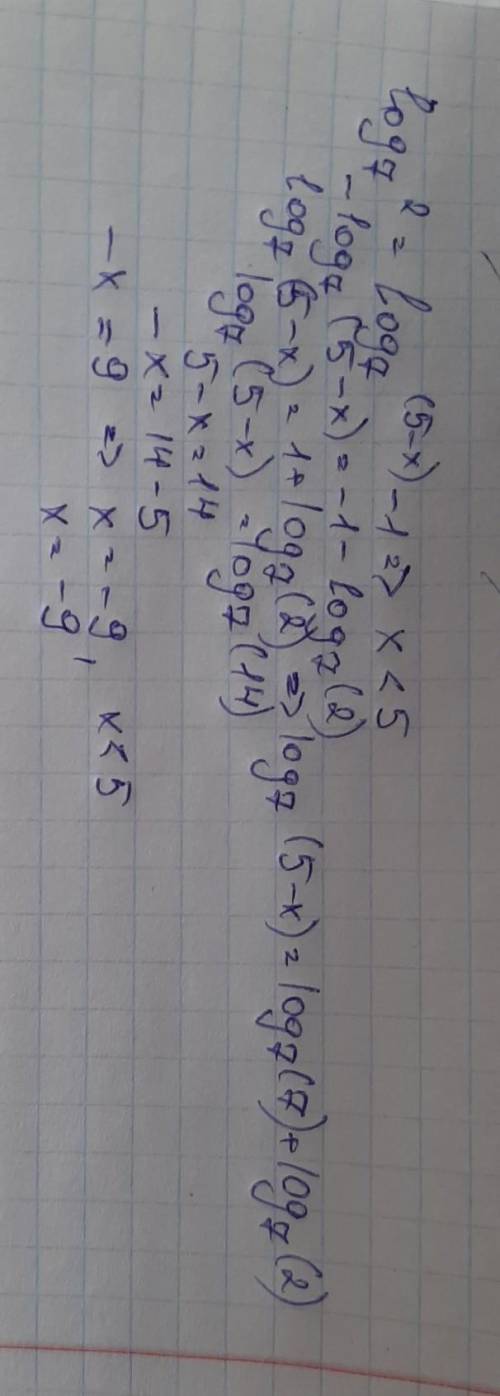 log₇ 2 = log₇ (5-x) - 1 => x < 5
- log₇ (5-x) = -1 - log₇ (2)
log₇ (5-x) = 1 + log₇ (2) => log₇ (5-x) = log₇ (7) + log₇ (2)
log₇ (5-x) = log₇ (14)
5-x = 14
-x = 14-5
-x = 9 => x = -9, x < 5
x = -9